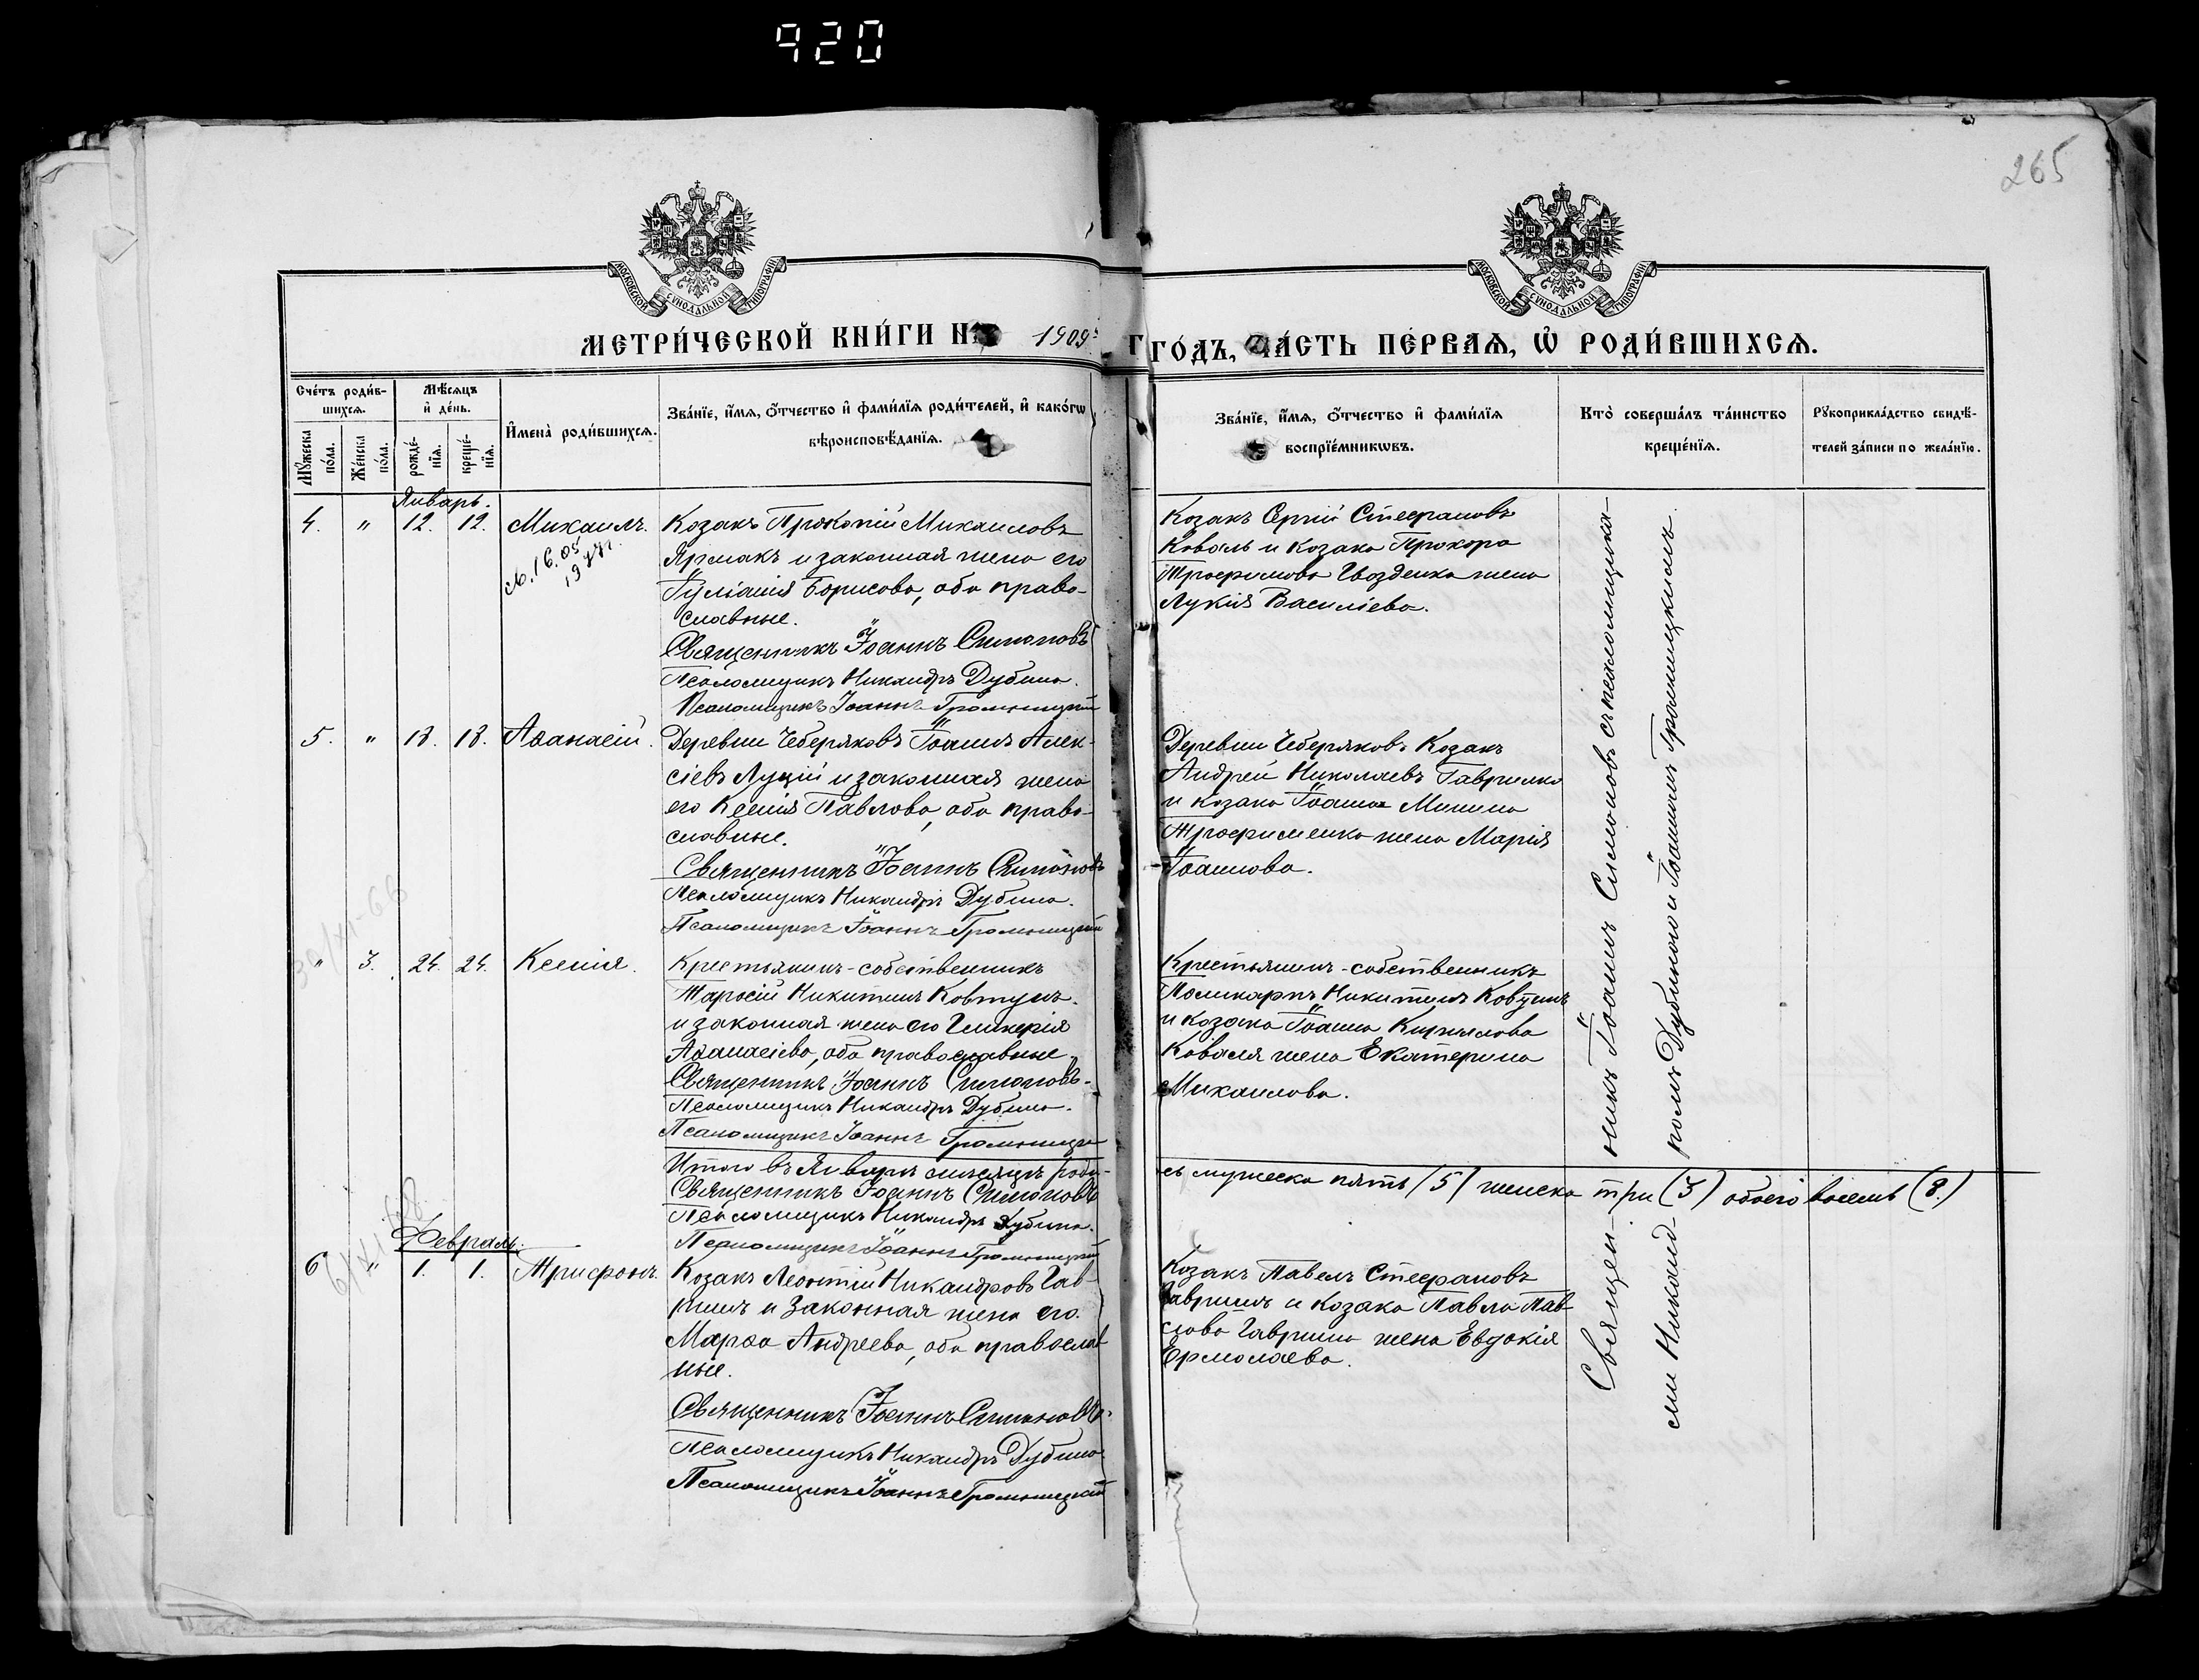 920
265
МОСКОВСКОЙ СУНОДАЛЬНОЙ ТИПОГРАФІИ
МОСКОВСКОЙ СУНОДАЛЬНОЙ ТИПОГРАФІИ
МЕТРИ́ЧЕСКОЙ КНИ́ГИ НА 1909 г
ГО́ДЪ, ЧА́СТЬ ПЕ́РВАѦ, Ѡ҆ РОДИ́ВШИХСѦ.
Сче́тъ роди́в-
шихсѧ.
Мꙋ́жеска по́ла.
Же́нска по́ла.
Мѣ́сѧцъ
и҆ де́нь.
рожде́-нїѧ.
креще́-нїѧ.
И҆мена̀ роди́вшихсѧ.
Зва́нїе, и҆́мѧ, ѻ҆́тчество и҆ фами́лїѧ роди́телей, и҆ како́гѡ
вѣроисповѣ́данїѧ.
Зва́нїе, и҆́мѧ, ѻ҆́тчество и҆ фами́лїѧ
воспрїе́мникѡвъ.
Кто̀ соверша́лъ та́инство
креще́нїѧ.
Рꙋкоприкла́дство свидѣ́-
телей за́писи по жела́нїю.
Январь.
4. " 12. 12. Михаилъ.
Козакъ Прокопій Михаиловъ
Ярмакъ и законная жена его
Іуліанія Борисова, оба право-
славные.
Священникъ Іоаннъ Симоновъ
Псаломщикъ Никандръ Дубина.
Псаломщикъ Іоаннъ
Козакъ Сергій Стефановъ
Коваль и козака Прохора
Трофимова Гвозденка жена
Лукія Василіева.
5. " 18. 18. Аѳанасій.
Деревни Чеберяковъ Іоаннъ Алек-
сіевъ Луцій и законная жена
его Ксенія Павлова, оба право-
славные.
Священникъ Іоаннъ Симоновъ
Псаломщикъ Никандръ Дубина.
Псаломщикъ Іоаннъ
Деревни Чеберяковъ Козакъ
Андрей Николаевъ Гаврилко
и козака Іоанна Минина
Трофименка жена Марія
Іоаннова.
" 3. 24. 24. Ксенія.
Крестьянинъ-собственникъ
Тарасій Никитинъ Ковтунъ.
и законная жена его Гликерія
Аѳанасіева, оба православные.
Священникъ Іоаннъ Симоновъ.
Псаломщикъ Никандръ Дубина.
Псаломщикъ Іоаннъ
Крестьянинъ-собственникъ
Поликарпъ Никитинъ Ковтунъ
и козака Іоанна Кирилова
Коваля жена Екатерина
Михаилова.
Итого въ Январѣ мѣсяцѣ роди-
сь мужеска пять (5) женска три (3) обоего восемь (8.)
Священникъ Іоаннъ Симоновъ
Псаломщикъ Никандръ Дубина.
Псаломщикъ Іоаннъ
Февраль.
6 " 1. 1. Трифонъ.
Козакъ Леонтій Никандровъ Гав-
ришъ и Законная жена его.
Марѳа Андреева, оба православ
ные.
Священникъ Іоаннъ Симоновъ.
Псаломщикъ Никандръ Дубина
Псаломщикъ Іоаннъ
Козакъ Павелъ Стефановъ
Гавришъ и козака Павла Пав-
лова Гавриша жена Евдокія
Ермолаева.
Священ-
никъ Іоаннъ Симоновъ съ псаломщика-
ми Никанд-
ромъ Дубиною и Іоанномъ